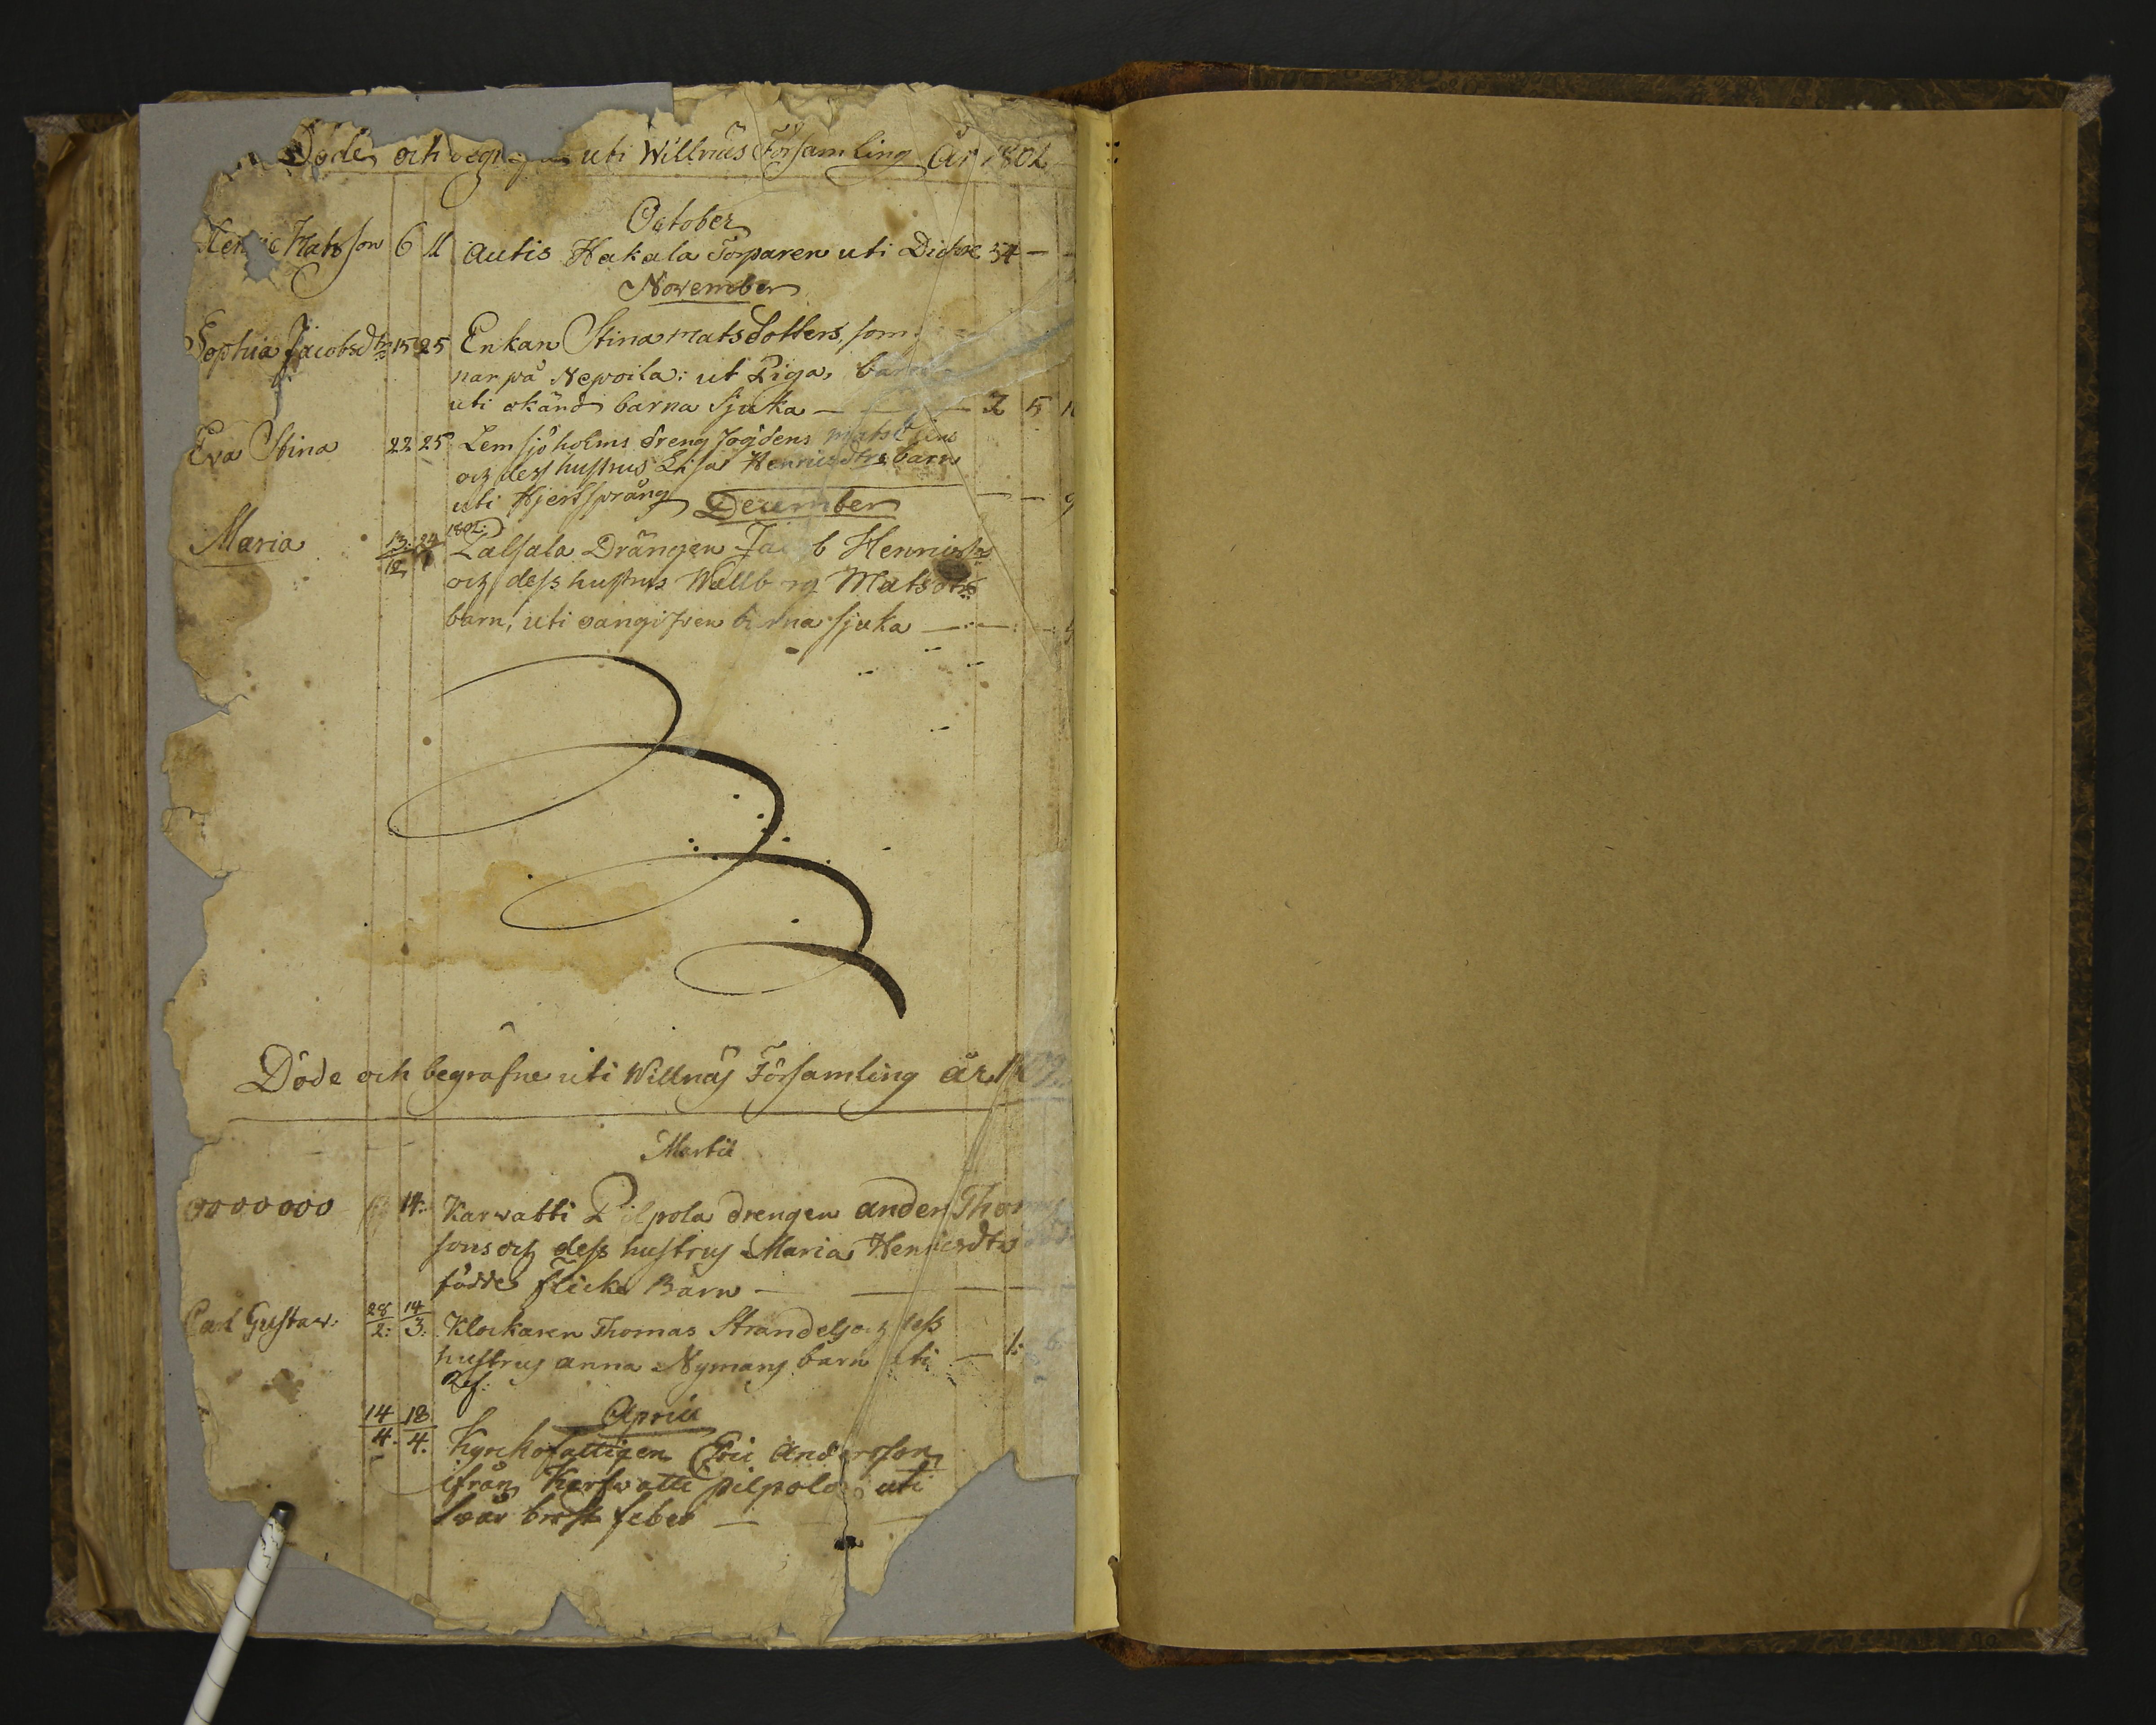 Döde och uti Willnäs Församling År 1802
October
Matsson 6 11 Autis Hakala Torparen uti 54 —
November
Sophia Jacobsdtr 15 25 Enkan Stina Matsdotters, som
när på Nepoila: ut Piga, barn
uti okänd barna sjuka — — — 2 5
Eva Stina 22 25 Lemsjöholms dreng
och dess hustrus Lisa Henricsdtrs barn
uti Hjertsprång — —
December
Maria 13/12 24 1802: Palsala Drängen Jacob Henrics
och dess hustrus Wallborg Matsdtrs
barn, uti oangifven barna sjuka — —
Döde och begrafne uti Willnäs Församling år
Martii
0000000 14. Karvatti Pilpola drengen Anders Thom
sons och dess hustrus Maria Henricsdtrs död
födde flicke Barn — —
Carl Gustav: 28/2: 14/3: Klockaren Thomas Strandels och dess
hustrus Anna Nymans barn uti — 1: 6
April
14/4. 18/4. Kyrkofattigen Eric Andersson
ifrån Karfvatti pilpola uti
svår bröst feber —